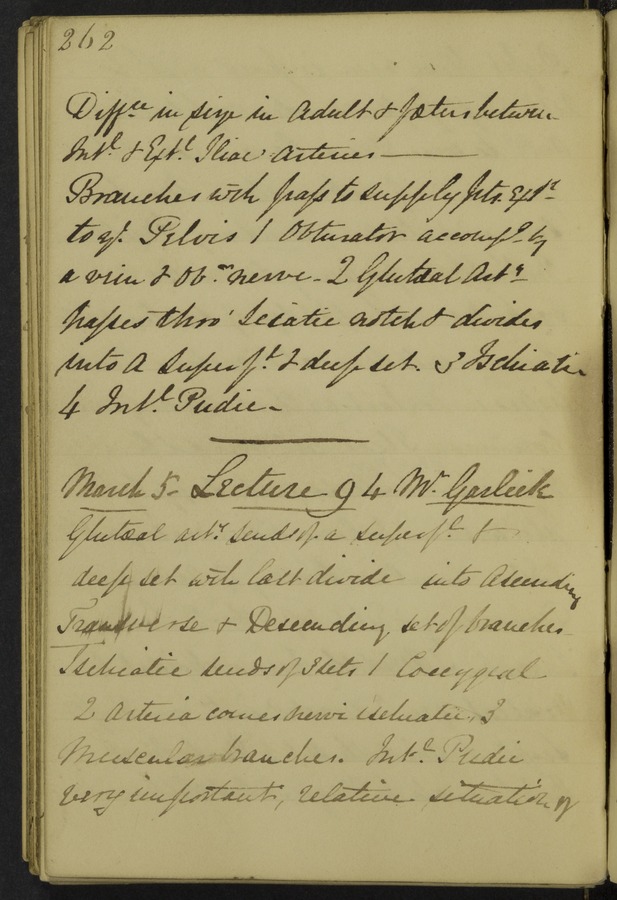 262
Diffce in size in Adult & fœtus between
Intl & Extl Iliac arteries —
Branches wch pass to supply pts. Extl
to ye. Pelvis 1 Obturator accompd by
a vein & Obm nerve - 2 Glutœal Arty
passes thro' Sciatic notch & divides
into a Superfl & deep set. 3 Ischiatic
4 Intl. Pudic -
March 5 - Lecture 94 Mr Garlick
Glutœal arty sends of a superfl &
deep set wch last divide into Ascending
Transverse & Descending set of branches
Ischiatic sends of 3 sets 1 Coccygeal
2 Arteria comes nervi ischiatici 3
Muscular branches. Intl Pudic
very important, relative situation of